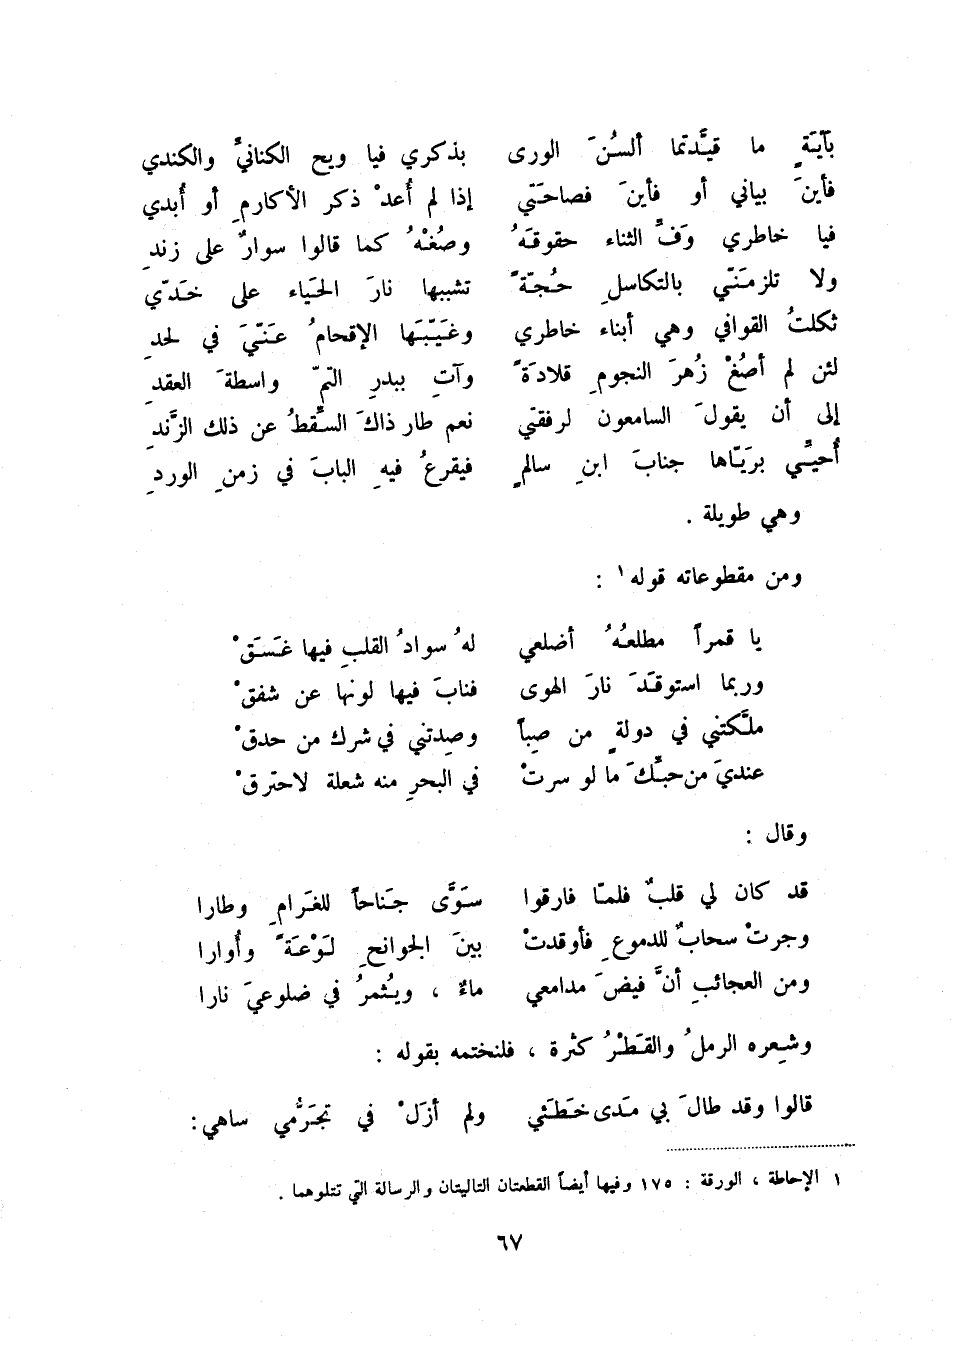 بآيَةٍ ما قيَّدتما ألسُنَ الورى بذكري فيا ويح الكنانيِّ والكندي
فأينَ بياني أو فأينَ فصاحَتي إذا لم أُعدْ ذكر الأكارمِ أو أُبدي
فيا خاطري وَفِّ الثناء حقوقَهُ وصُغْهُ كما قالوا سوارٌ على زندِ
ولا تلزمَنّي بالتكاسلِ حُجّةً تشببها نارَ الحَياء على خَدّي
ثكلتُ القوافي وهي أبناء خاطري وغَيّبَها الإقحامُ عَنّيَ في لحدِ
لئن لم أصُغْ زُهرَ النجومِ قلادَةً وآتِ ببدرِ التمّ واسطةَ العقدِ
إلى أن يقولَ السامعون لرفقتي نعم طار ذاكَ السِّقطُ عن ذلك الزَّندِ
أُحيِّي بريَّاها جنابَ ابنِ سالمٍ فيقرعُ فيهِ البابَ في زمنِ الوردِ
وهي طويلة .
ومن مقطوعاته قوله١ :
يا قمراً مطلعُهُ أضلعي لهُ سوادُ القلبِ فيها غَسَقْ
وربما استوقَدَ نارَ الهوى فنابَ فيها لونها عن شفقْ
ملَّكتني في دولةٍ من صِباً وصِدتني في شرك من حدقْ
عنديَ من حبِّكَ ما لو سرتْ في البحرِ منه شعلة لاحترقْ
وقال :
قد كان لي قلبٌ فلمّا فارقوا سَوَّى جَناحاً للغَرامِ وطارا
وجرتْ سحابٌ للدموعِ فأوقدتْ بينَ الجوانحِ لَوْعَةً وأُوارا
ومن العجائبِ أنَّ فيضَ مدامعي ماءٌ ، ويُثمرُ في ضلوعيَ نارا
وشِعره الرملُ والقَطْرُ كثرة ، فلنختمه بقوله :
قالوا وقد طالَ بي مَدى خَطَئي ولم أزَلْ في تجَرُّمي ساهي :
١ الإحاطة ، الورقة : ١٧٥ وفيها أيضاً القطعتان التاليتان والرسالة التي تتلوهما .
٦٧